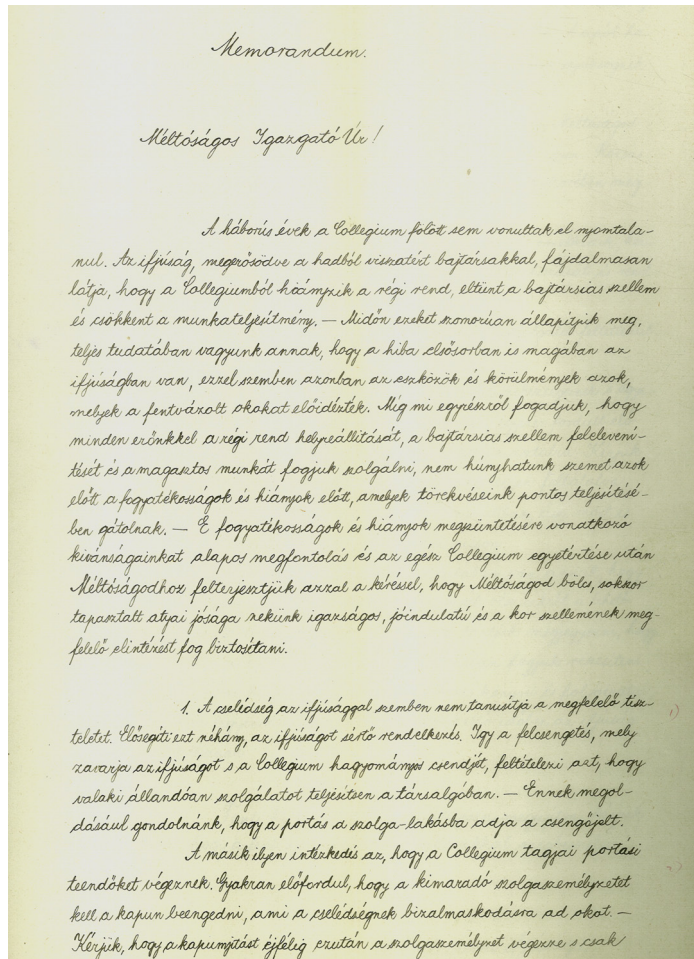 Memorandum.
Méltóságos Igazgató Úr!
A háborús évek a Collegium fölött sem vonultak el nyomtala-
nul. Az ifjúság, megerősödve a hadból visszatért bajtársakkal, fájdalmasan
látja, hogy a Collegiumból hiányzik a régi rend, eltünt a bajtársias szellem
és csökkent a munkateljesítmény. — Midőn ezeket szomorúan állapítjuk meg,
teljes tudatában vagyunk annak, hogy a hiba elsősorban is magában az
ifjúságban van, ezzel szemben azonban az eszközök és körülmények azok,
melyek a fentvázolt okokat előidézték. Míg mi egyrészről fogadjuk, hogy
minden erőnkkel a régi rend helyreállítását, a bajtársias szellem feleleveni-
tését és a magasztos munkát fogjuk szolgálni, nem húnyhatunk szemet azok
előtt a fogyatékosságok és hiányok előtt, amelyek törekvéseink pontos teljesítésé-
ben gátolnak. — E fogyatékosságok és hiányok megszüntetésére vonatkozó
kivánságainkat alapos megfontolás és az egész Collegium egyetértése után
Méltóságodhoz felterjesztjük azzal a kéréssel, hogy Méltóságod bölcs, sokszor
tapasztalt atyai jósága nekünk igazságos, jóindulatú és a kor szellemének meg-
felelő elintézést fog biztosítani.
1. A cselédség az ifjúsággal szemben nem tanusítja a megfelelő tisz-
teletet. Elősegíti ezt néhány, az ifjúságot sértő rendelkezés. Igy a felcsengetés, mely
zavarja az ifjúságot s a Collegium hagyományos csendjét, feltételezi azt, hogy
valaki állandóan szolgálatot teljesítsen a társalgóban. — Ennek megol-
dásául gondolnánk, hogy a portás a szolga-lakásba adja a csengőjelt.
A másik ilyen intézkedés az, hogy a Collegium tagjai portási
teendőket végeznek. Gyakran előfordul, hogy a kimaradó szolgaszemélyzetet
kell a kapun beengedni, ami a cselédségnek bizalmaskodásra ad okot. —
Kérjük, hogy a kapunyitást éjfélig ezután a szolgaszemélyzet végezze s csak